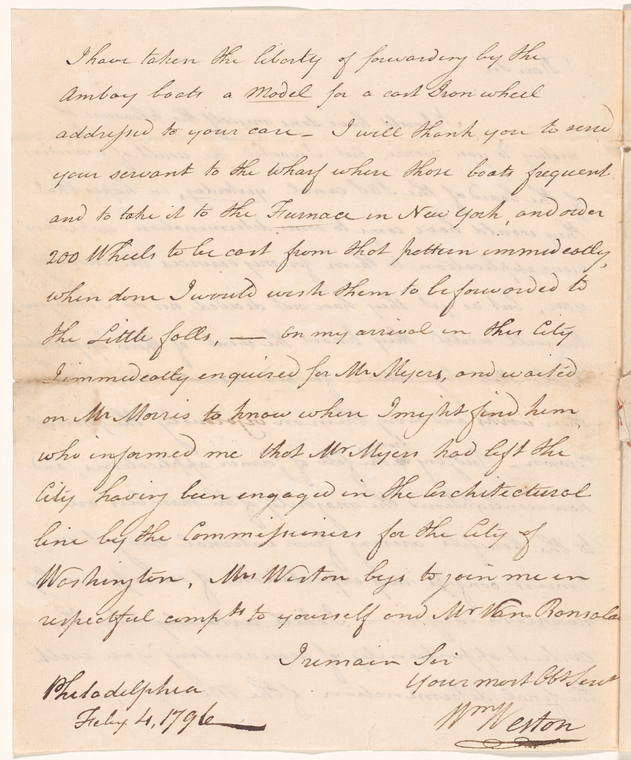 I have taken the liberty of forwarding by the
Amboy boats a Model for a cast Iron wheel
addressed to your care – I will thank you to send
your servant to the wharf where those boats frequent
and to take it to the Furnace in New York, and order
200 Wheels to be cast from that pattern immedeatly,
when done I would wish them to be forwarded to
the Little falls, — On my arrival in this City
I immedeatly enquired for Mr Myers, and waited
on Mr Morris to know where I might find him
who informed me that Mr Myers had left the
City having been engaged in the Architectural
line by the Commissioners for the City of
Washington, Mrs Weston begs to join me in
respectful compts to yourself and Mr Van Ransalar
I remain Sir
Your most Obt Servt
Wm Weston
Philadelphia
Feby 4, 1796